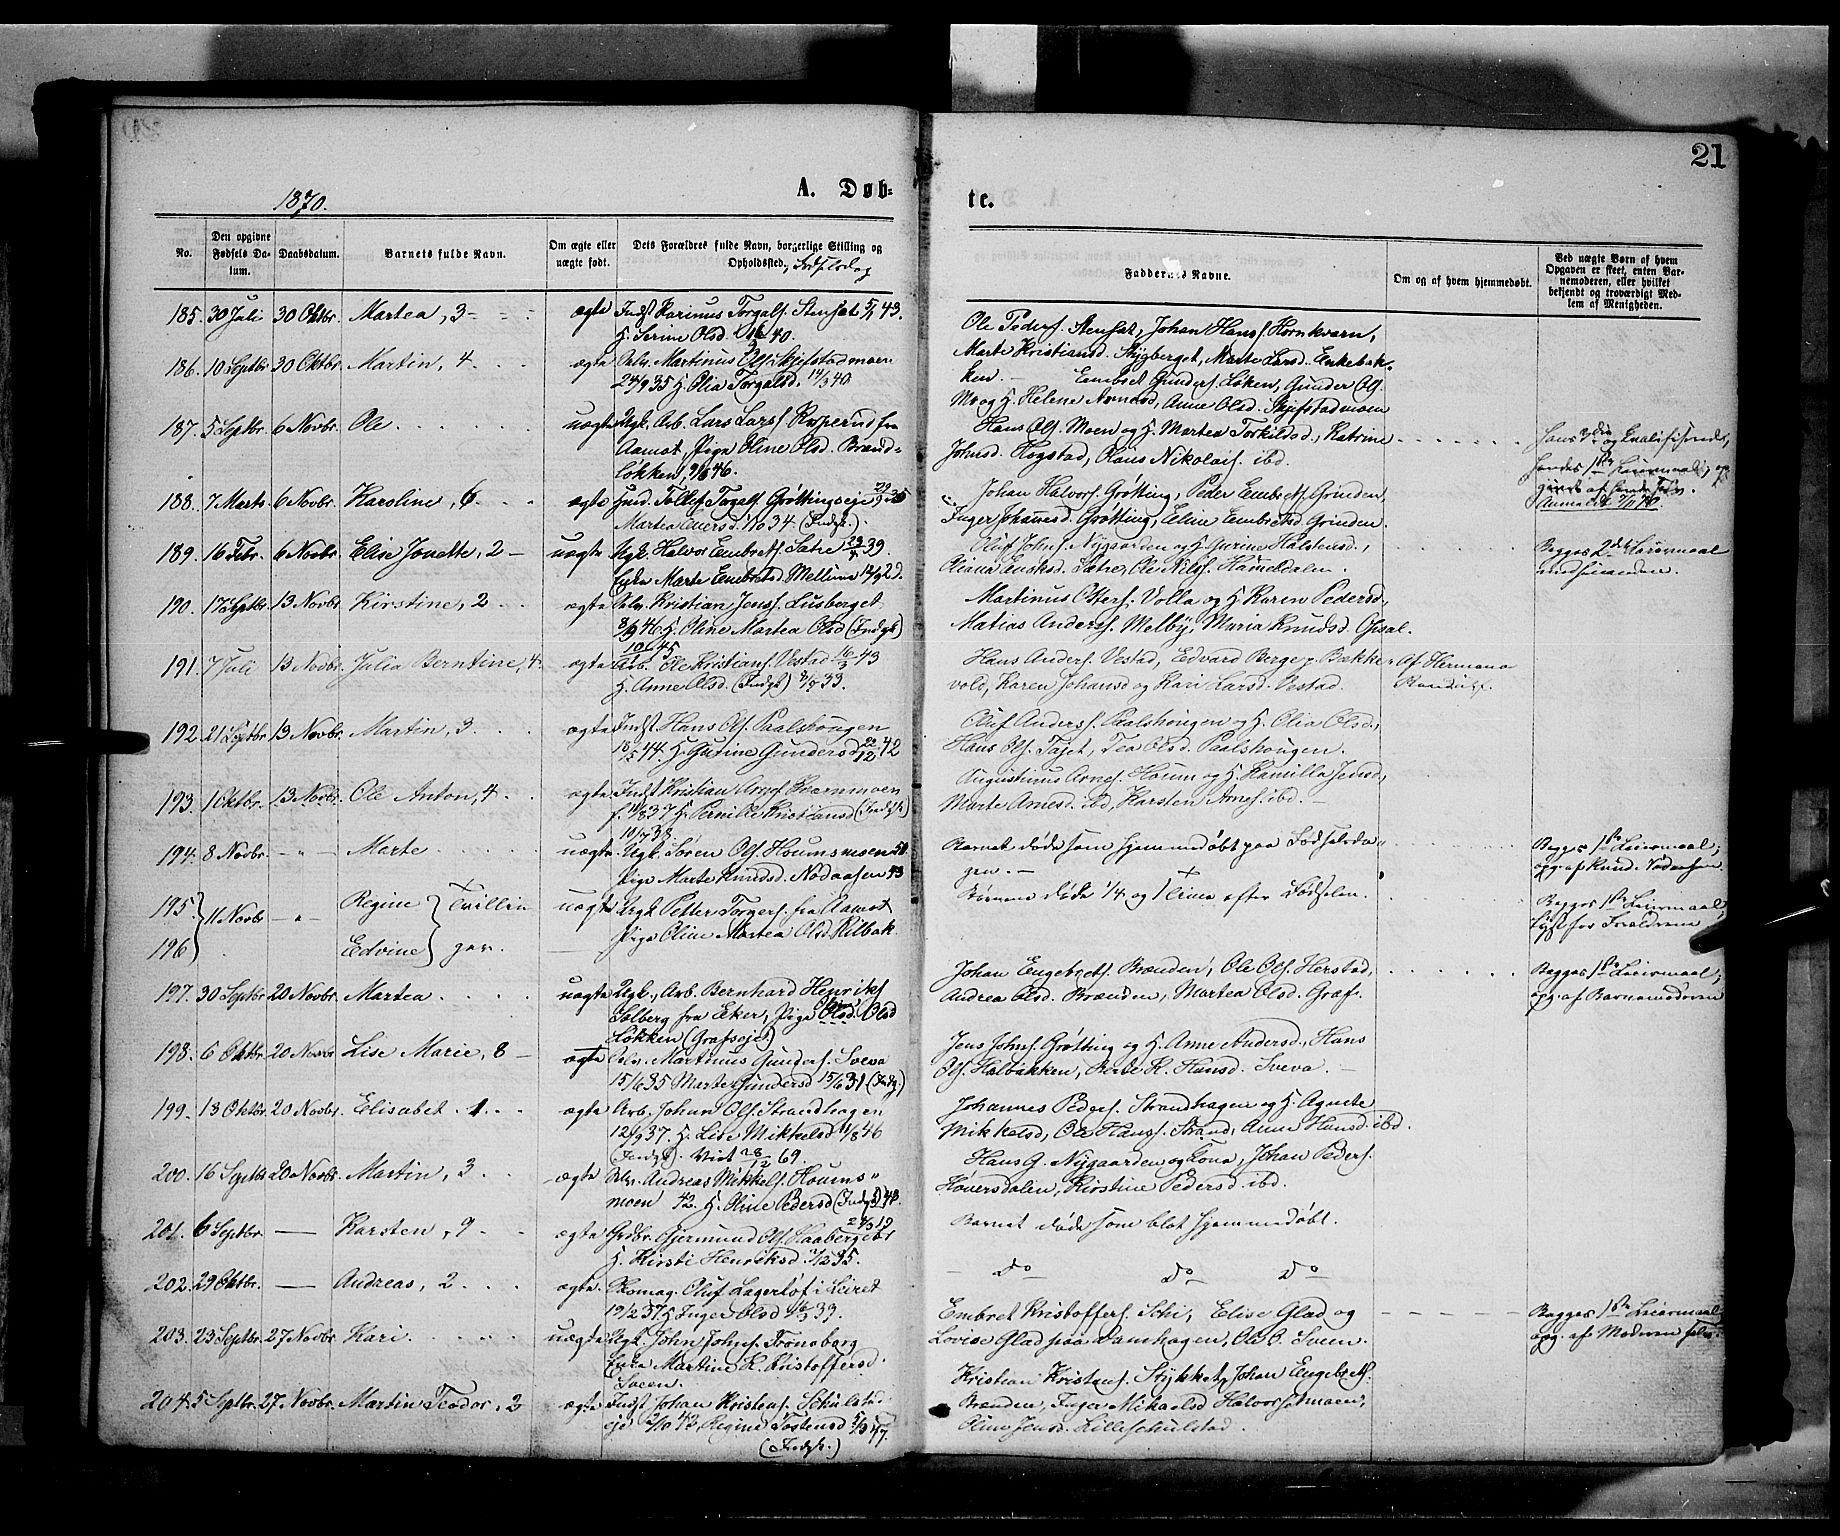 21
1870.
A. Døb-
te.
No.
Den opgivne Fødsels Da-tum.
Daabsdatum.
Barnets fulde Navn.
Om ægte eller uægte født.
Dets Forældres fulde Navn, borgerlige Stilling og Opholdssted,
Faddernes Navne.
Om og af hvem hjemmedøbt.
Ved uægte Børn af hvem Opgaven er skeet, enten Bar-nemoderen, eller hvilket bekjendt og troværdigt Med-lem af Menigheden.
185. 30 Juli 30 Oktbr. Martea, 3 ægte Indst Karinus Torgalfs. Stensæt 5/1 43.
H. Serine Olsd. 40.
Ole Peders. Stensæt, Johan Hans. Hornkværn,
186. 10 Septbr 30 Oktbr. Martin, 4 ægte Martinus Ols. Skjefstadmoen
24/9 35 H. Olia Torgalsd. 14/3 40
Marte Kristiansd. Skyberget, Marte Larsd. Enkebak-
ken. Embret Gunders. Løken, Gunder Ols.
Mo og H. Helene Arnesd, Anne Olsd. Skjefstadmoen
187. 5 Septbr. 6 Novbr. Ole uægte Ugk. Arb. Lars Lars. Risperud fra
Aamot, Pige Oline Olsd. Brænd-
Løkken, 46.
Hans Ols. Moen og H. Martea Torkildsd., Katrine
Johnsd. Kogstad, Claus Nikolais. ibd.
188. 7 Marts 6 Novbr. Karoline, 6 ægte Tollef Torgalfs. Grøttingseie 35
Martea Evensd. 34. (Indgk.)
Johan Halvors. Grøtting, Peder Embrets. Grinden
Inger Johannesd. Grøtting, Eline Embretsd Grinden.
189. 16 Febr. 6 Novbr. Elise Jonette, 2 uægte Ugk Halvor Embrets. Sætre 39.
Enke Marte Embretsd Mellum
Oluf Johns. Nygaarden og H. Gurine Halstensd.,
Oliana Sætre, Ole Nils. Hameldalen.
Begges 2det Leiermaal
190. 17 Septbr 13 Novbr. Kirstine, 2 ægte Kristian Jens. Lusberget
46 H. Oline Martea Olsd (Indgk)
Martinus Osters. Volla og H. Karen Pedersd.,
Matias Anders. Melby, Maria Knudsd. Opsal.
191. 7 Juli 13 Novbr. Julia Berntine, 4 ægte Arb. Ole Kristians. Vestad 16/3 43
H. Anne Olsd. (Indgk) 33.
Hans Anders. Vestad, Edvard Berger Bække-
vold, Karen Johansd og Kari Larsd. Vestad.
Af Hermana
192. 21 Septbr 13 Novbr. Martin, 3 ægte Indst Hans Ols. Paalshougen
44. H. Gurine Gundersd 42
Oluf Anders. Paalshougen og H. Olia Olsd.,
Hans Ols. Tajet, Tea Olsd. Paalshougen.
193. 1 Oktbr. 13 Novbr. Ole Anton, 4 ægte Indst Kristian Arnes.
37 H. Pernille Kristiansd (Indgk)
10/7 38.
Augustinus Arnes. Houm og H. Kamilla Jensd,
Marte Arnesd. ibd, Karsten Arnes. ibd.
194. 8 Novbr. Marte uægte Ugk. Søren Ols. Houmsmoen 50
Pige Marte Knudsd. Nødaasen 43
Barnet døde som hjemmedøbt paa Fødselsda-
gen.
Begges 1ste Leiermaal;
opg. af Knud Nødaasen
195 11 Novbr Regine Tvillin- uægte Ugk Petter Torgers. fra Aamot
196 Edvine ger. Pige Oline Martea Olsd. Kilbak.
Børnene døde 1/4 og 1 Time efter Fødselen.
Begges 1ste Leiermaal
197. 30 Septbr 20 Novbr. Martea uægte Ugk., Arb. Bernhard Henriks
Solberg fra Eker, Pige Olsd
Løkken (Grafseiet)
Johan Engebrets. Brænden, Ole Ols. Herstad,
Andrea Olsd. Brænden, Martea Olsd. Graf.
Begges 1ste Leiermaal;
opg. af Barnemoderen
198. 6 Oktbr 20 Novbr Lise Marie, 8 ægte Martinus Gunders. Sveva
15/6 35 Marte Gundersd 15/6 31 (Indg.)
Jens Johns. Grøtting og H. Anne Andersd., Hans
Ols. Holbakken, Hansd. Sveva.
199. 13 Oktbr. 20 Novbr. Elisabet. 1 ægte Arb. Johan Ols. Strandhagen
12/9 37. H. Lise Mikkelsd 11/8 46
(Indgk). Viet 28/12 69.
Johannes Peders. Strandhagen og H. Agnete
Mikkelsd, Ole Hans. Strand, Anne Hansd. ibd.
200. 16 Septbr 20 Novbr. Martin, 3 ægte Andreas Mikkels. Houms-
moen 42. H. Oline Pedersd (Indgk) 48.
Hans G. Nygaarden og Kona, Johan Peders.
Høversdalen, Kirstine Pedersd. ibd.
201. 6 Septbr. Karsten, 9 ægte Grdbr. Gjermund Ols. Haaberget
H. Kirsti Henriksd. 35.
Barnet døde som blot hjemmedøbt.
202. 29 Oktbr. Andreas, 2 ægte Skomag. Oluf Lagerløf i Leiret
19/12 37 H. Inger Olsd 16/3 33.
Do Do Do
203. 23 Septbr. 27 Novbr Kari uægte Ugk. John Johns. Tronsborg
Enke Martine K. Kristoffersd.
Sveen.
Embret Kristoffers. Schi, Elise Glad og
Lovise Glad paa Damhagen, Ole O. Sveen.
Begges 1ste Leiermaal
opg. af Moderen selv.
204. 5 Septbr. 27 Novbr. Martin Teodor, 2 ægte Indst Johan Kristens. Schulstad-
eje 43, Regine Tostensd 5/3 47.
(Indgk.)
Kristian Kristens. Stykket, Johan Engebrets.
Brænden, Inger Mikaelsd Halvorsetmoen,
Oline Jensd. Lilleschulstad.